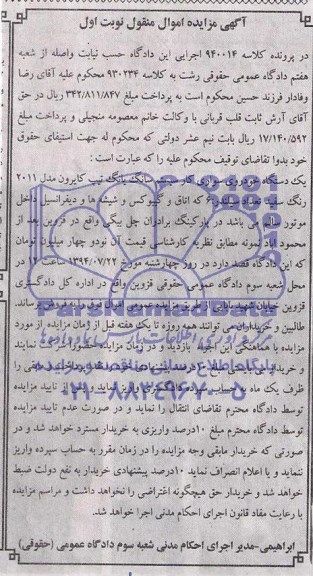 آگهی مزایده اموال منقول نوبت اول
در پرونده کلاسه ۹۴۰۰۱۴ اجرایی این دادگاه حسب نیابت واصله از شعبه
هفتم دادگاه عمومی حقوقی رشت به کلاسه ۹۳۰۲۳۴ محکوم علیه آقای رضا
وفادار فرزند حسین محکوم است به پرداخت مبلغ ۳۴۲/۸۱۱/۸۴۷ ریال در حق
آقای آرش ثابت قلب قربانی با وکالت خانم معصومه منجیلی و پرداخت مبلغ
۱۷/۱۴۰/۵۹۲ ریال بابت نیم عشر دولتی که محکوم له جهت استیفای حقوق
خود بدوا تقاضای توقیف محکوم علیه را که عبارت است :
یک دستگاه خودروی سواری کار سیستم سانگ یانگ تیپ کایرون مدل ۲۰۱۱
رنگ سفید تعداد سیلندر ۶ که اتاق و گیربوکس و شیشه ها و دیفرانسیل داخل
موتور سالم می باشد در پارکینگ برادران چل بیگی واقع در قزوین بعد از
محمود آباد نمونه مطابق نظریه کارشناسی قیمت آن نودو چهار میلیون تومان
که این دادگاه قصد دارد در روز چهارشنبه مورخ ۱۳۹۴/۰۷/۲۲ ساعت ۱۲ در
محل شعبه سوم دادگاه عمومی حقوقی قزوین واقع در اداره کل دادگستری
قزوین خیابان شهید بابایی از طریق مزایده عمومی اموال فوق را به فروش برساند.
طالبین و خریداران می توانند همه روزه تا یک هفته قبل از زمان مزایده از مورد
مزایده با هماهنگی این اجرا بازدید و در زمان مزایده حضور نمایند
و خریدار می بایست مبلغ ۱۰ درصد پیشنهادی خود نقدا و مابقی را
ظرف یک ماه به حساب سپرده دادگستری واریز نماید و پس از تایید مزایده
توسط دادگاه محترم تقاضای انتقال را نماید و در صورت عدم تایید مزایده
توسط دادگاه محترم مبلغ ۱۰ درصد واریزی به خریدار مسترد خواهد شد و در
صورتی که خریدار مابقی وجه مزایده را در زمان مقرر به حساب سپرده واریز
ننماید و یا اعلام انصراف نماید ۱۰ درصد پیشنهادی خریدار به نفع دولت ضبط
خواهد شد و خریدار حق هیچگونه اعتراضی را نخواهد داشت و مراسم مزایده
با رعایت مفاد قانون اجرای احکام مدنی اجرا خواهد شد.
ابراهیمی-مدیر اجرای احکام مدنی شعبه سوم دادگاه عمومی (حقوقی)
ParsNamadData
۰۲۱-۸۸۳۴۹۶۷۰-۵